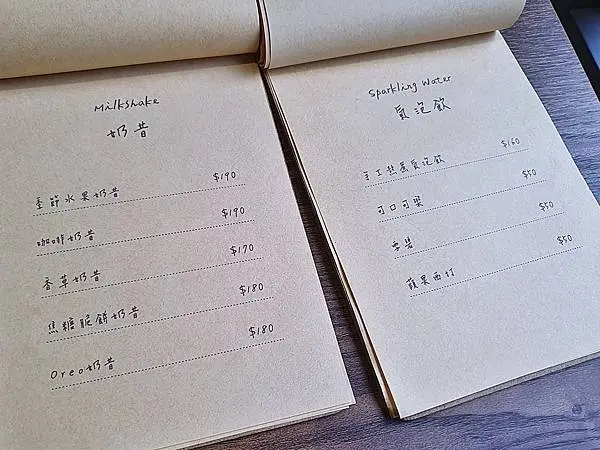 Milkshake
奶昔
季節水果奶昔 $190
咖啡奶昔 $190
香草奶昔 $170
焦糖脆餅奶昔 $180
Oreo奶昔 $180
Sparkling Water
氣泡飲
手工熬蜜氣泡飲 $160
可口可樂 $50
雪碧 $50
蘋果西打 $50